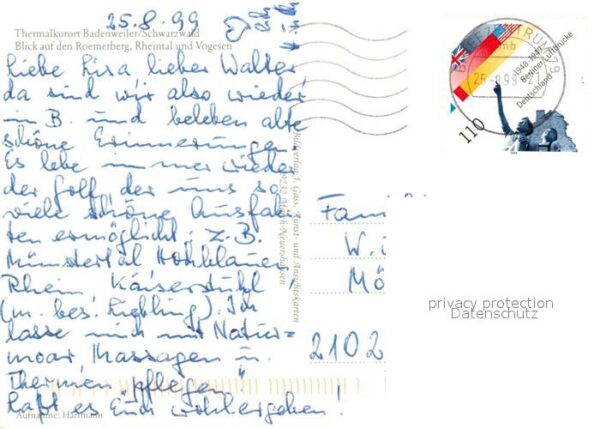 25.8.99
Thermalkurort Badenweiler/Schwarzwald
Blick auf den Roemerberg, Rheintal und Vogesen
Liebe Lisa lieber Walter
da sind wir also wieder
in B. und beleben alte
schöne Erinnerungen.
Es lebe immer wieder
der Golf, der uns so
viele schöne Ausfahr-
ten ermöglicht, z.B.
Münstertal Hochblauen
Rhein Kaiserstuhl
(m. bes. Liebling). Ich
lasse mich mit Natur=
moor, Massagen u.
Thermen "pflegen".
Laßt es Euch wohlergehen!
Aufnahme: Hartmann
110
1948-1949
Berliner Luftbrücke
Deutschland
BRIEFZENTRUM 79
25.8.99
Fami
W.
Mö
2102
privacy protection
Datenschutz